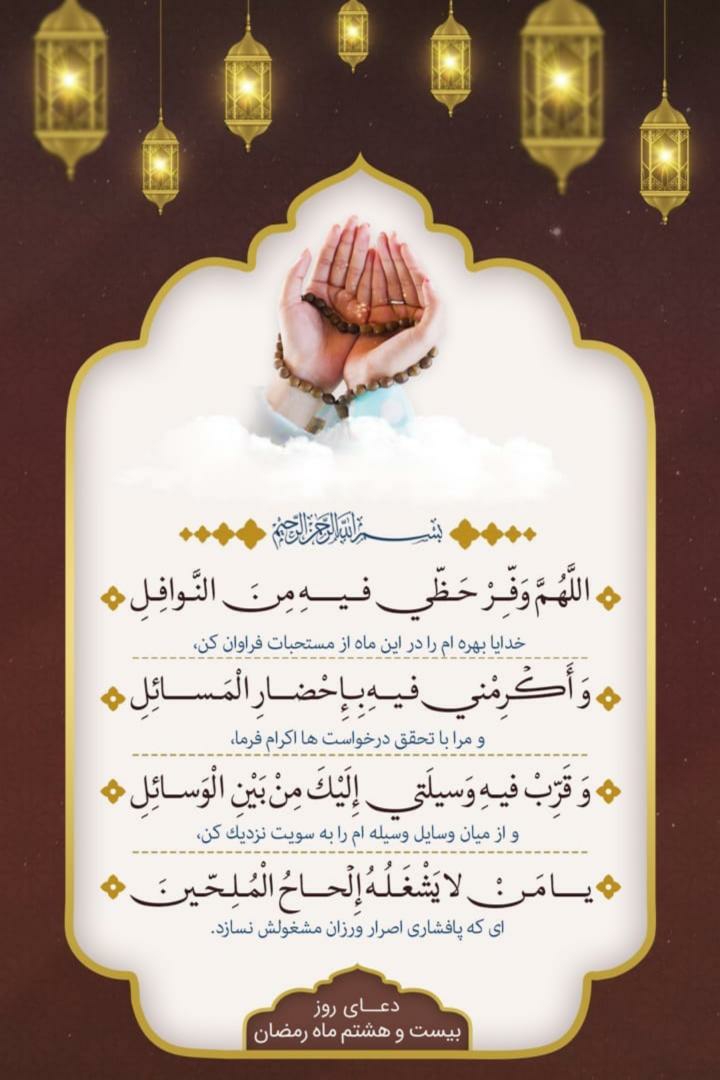 بِسْمِ اللَّهِ الرَّحْمَنِ الرَّحِيمِ
اللَّهُمَّ وَفِّرْ حَظّي فيهِ مِنَ النَّوافِلِ
خدایا بهره ام را در این ماه از مستحبات فراوان کن،
وَ أَكْرِمْني فيهِ بِإِحْضارِ الْمَسائِلِ
و مرا با تحقق درخواست ها اکرام فرما،
وَ قَرِّبْ فيهِ وَسيلَتي إِلَيْكَ مِنْ بَيْنِ الْوَسائِلِ
و از میان وسایل وسیله ام را به سویت نزدیك کن،
يا مَنْ لا يَشْغَلُهُ إِلْحاحُ الْمُلِحّينَ
ای که پافشاری اصرار ورزان مشغولش نسازد.
دعای روز
بیست و هشتم ماه رمضان